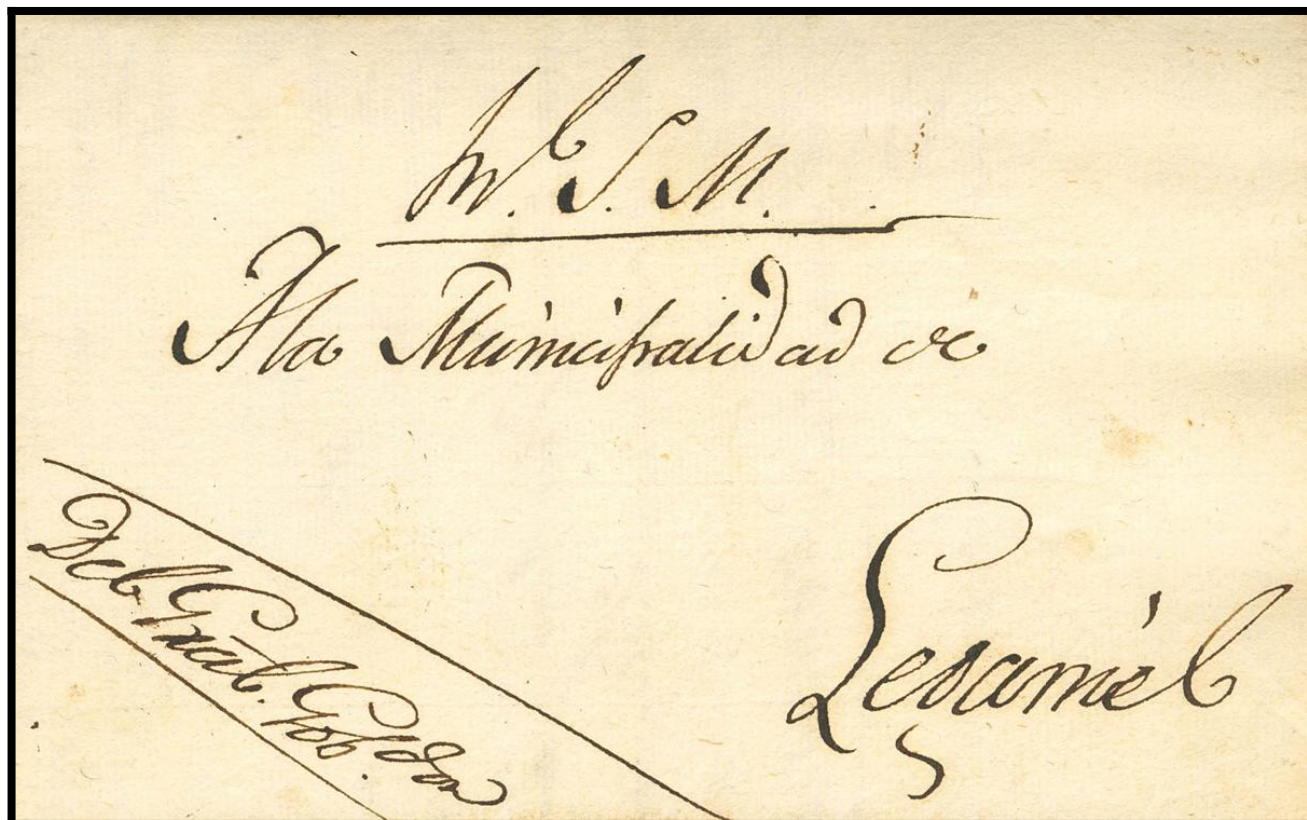 S. M.
A la Municipalidad de
Del Gral. Gobdor